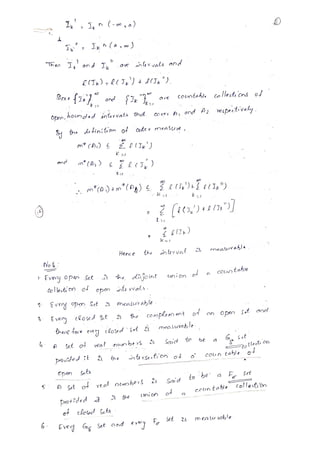 I_k' = I_k ∩ (-∞, a)
I_k'' = I_k ∩ (a, ∞)
Then I_k' and I_k'' are intervals and
ℓ(I_k) = ℓ(I_k') + ℓ(I_k'').
{I_k'}_{k=1}^∞ and {I_k''}_{k=1}^∞ are countable collections of
open, bounded intervals that cover A₁ and A₂ respectively.
By the definition of outer measure,
m*(A₁) ≤ Σ_{k=1}^∞ ℓ(I_k')
and m*(A₂) ≤ Σ_{k=1}^∞ ℓ(I_k'')
∴ m*(A₁) + m*(A₂) ≤ Σ_{k=1}^∞ ℓ(I_k') + Σ_{k=1}^∞ ℓ(I_k'')
= Σ_{k=1}^∞ [ℓ(I_k') + ℓ(I_k'')]
= Σ_{k=1}^∞ ℓ(I_k)
Hence the interval is measurable.
Note:
1 Every open set is the disjoint union of a countable
collection of open intervals.
2 Every open set is measurable.
3 Every closed set is the complement of an open set and
therefore every closed set is measurable.
4 A set of real numbers is said to be a G_δ set
provided it is the intersection of a countable collection of
open sets
5 A set of real numbers is said to be a F_σ set
provided it is the union of a countable collection
of closed sets
6 Every G_δ set and every F_σ set is measurable